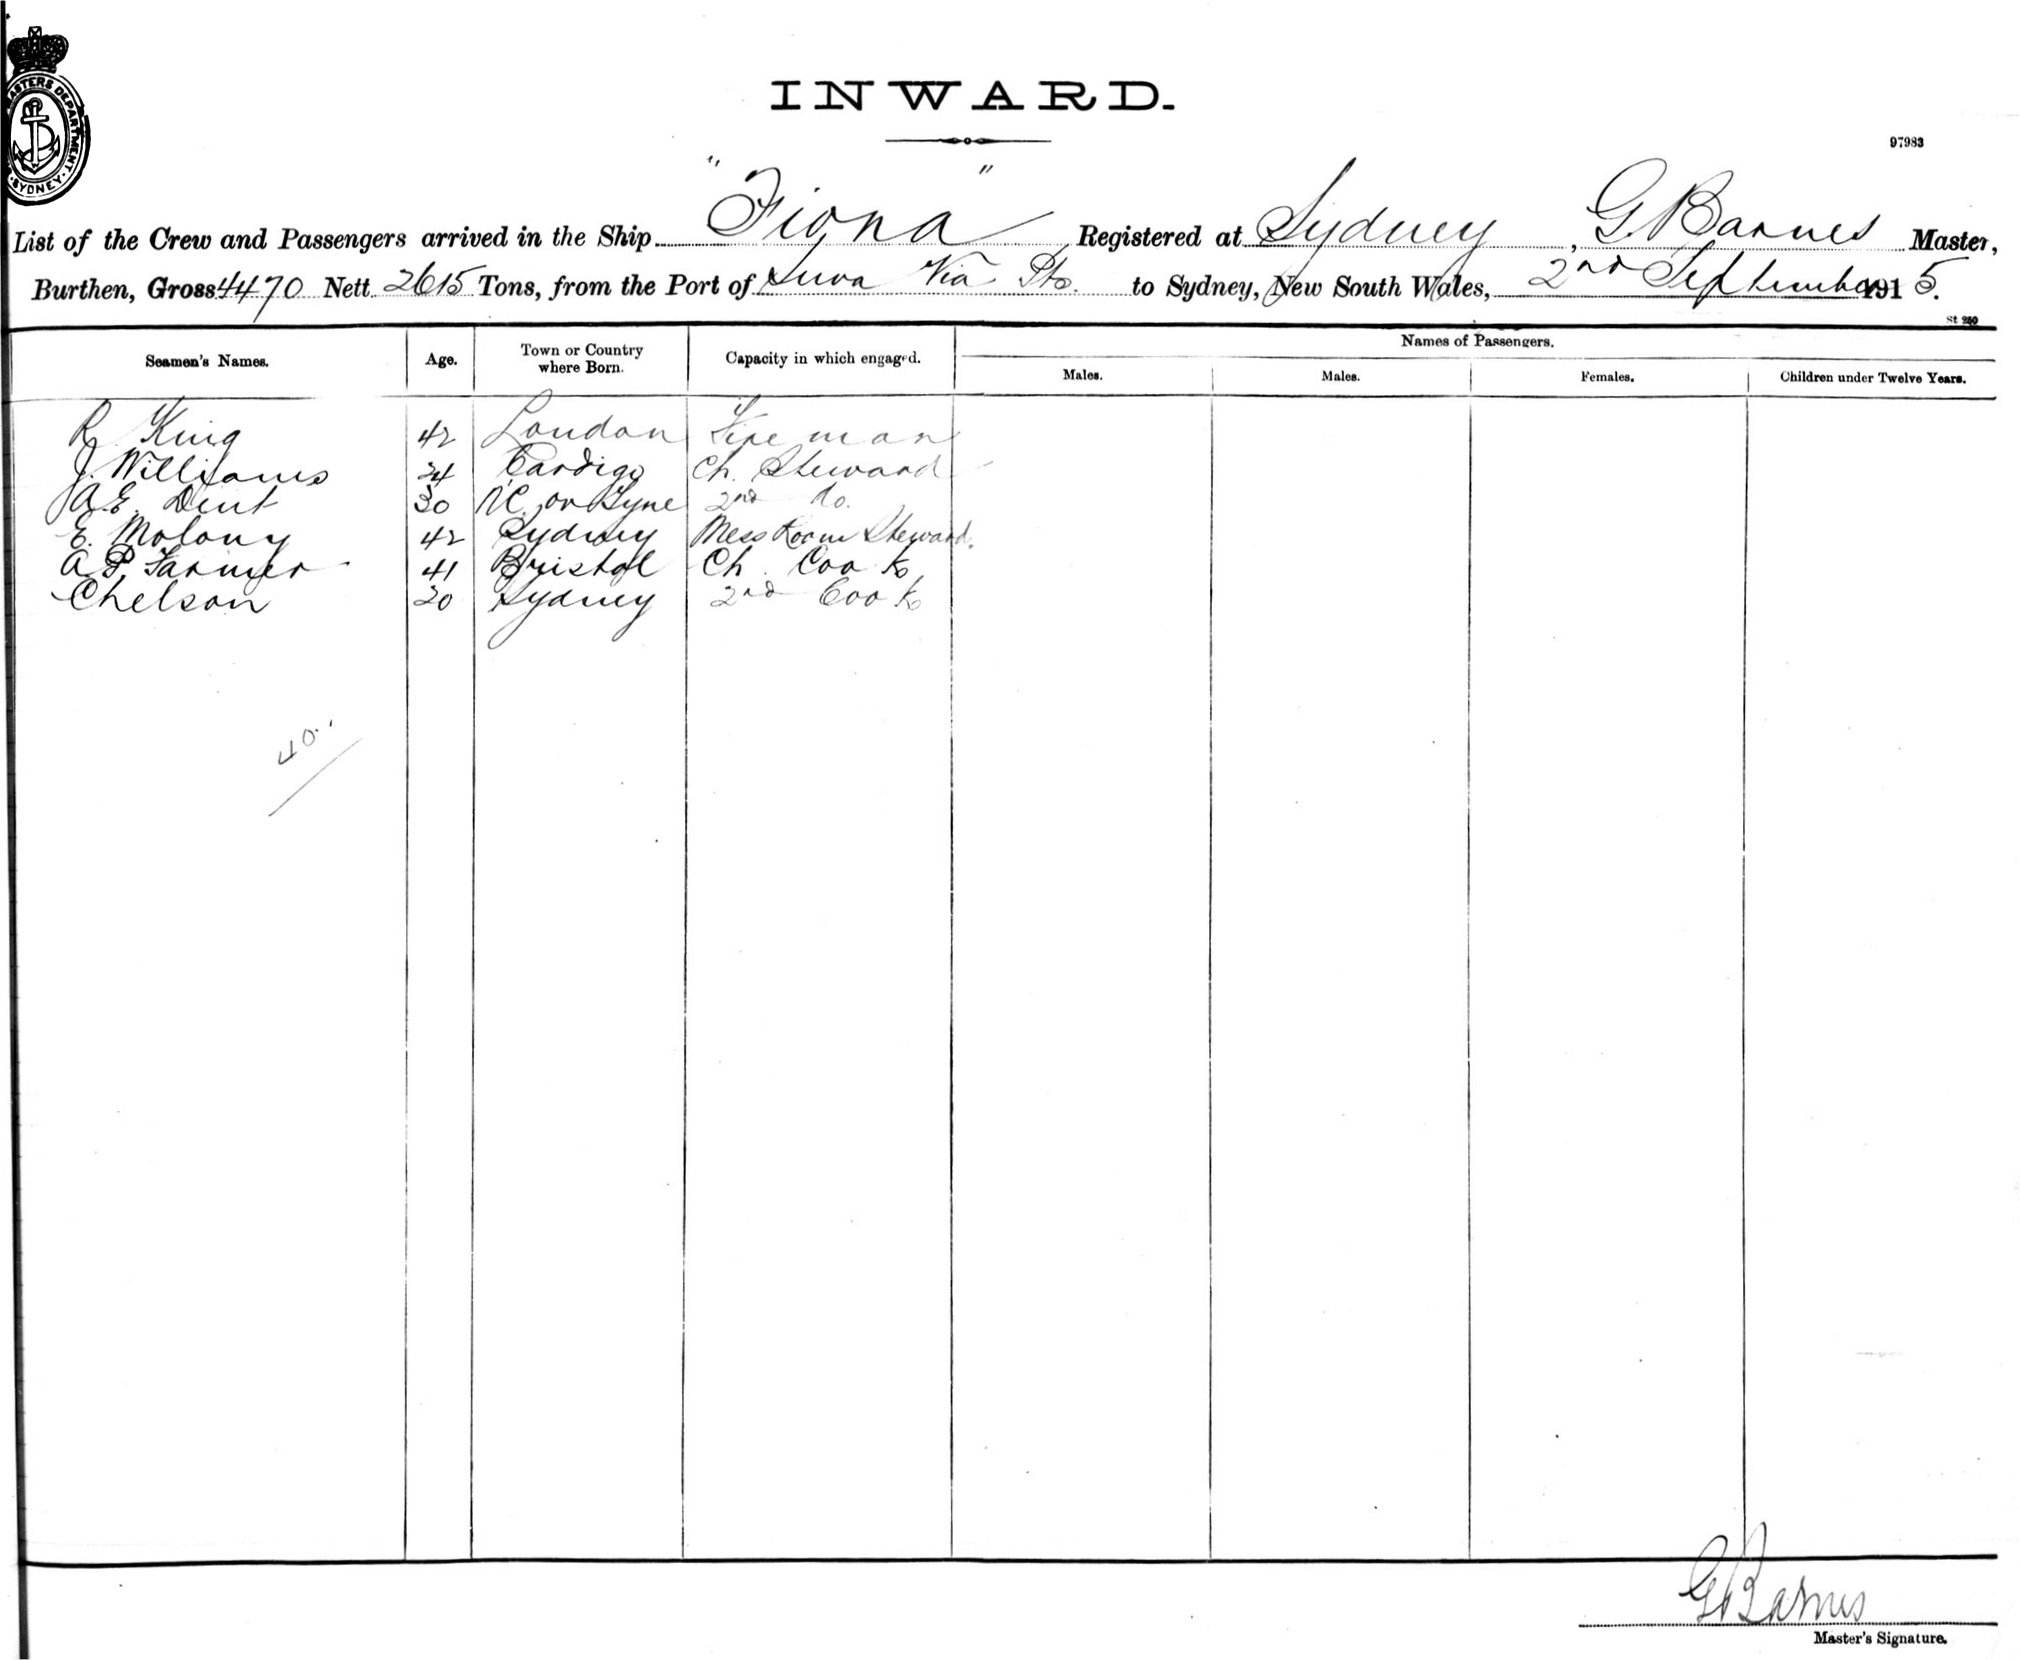 MASTERS DEPARTMENT
SYDNEY
INWARD.
97983
List of the Crew and Passengers arrived in the Ship "Fiona" Registered at Sydney, G Barnes Master,
Burthen, Gross 4470 Nett 2615 Tons, from the Port of Suva Via Pts. to Sydney, New South Wales, 2nd September 1915.
St 280
Seamen's Names. Age. Town or Country where Born. Capacity in which engaged. Names of Passengers.
Males. Males. Females. Children under Twelve Years.
R King 42 London Fireman
J. Williams 34 Cardiga Ch. Steward
A.E. Dent 30 N.C. on Tyne 2nd do.
E. Molony 42 Sydney Mess Room Steward.
A P Farmer 41 Bristol Ch. Cook
Chelson 30 Sydney 2nd Cook
40.
G Barnes
Master's Signature.